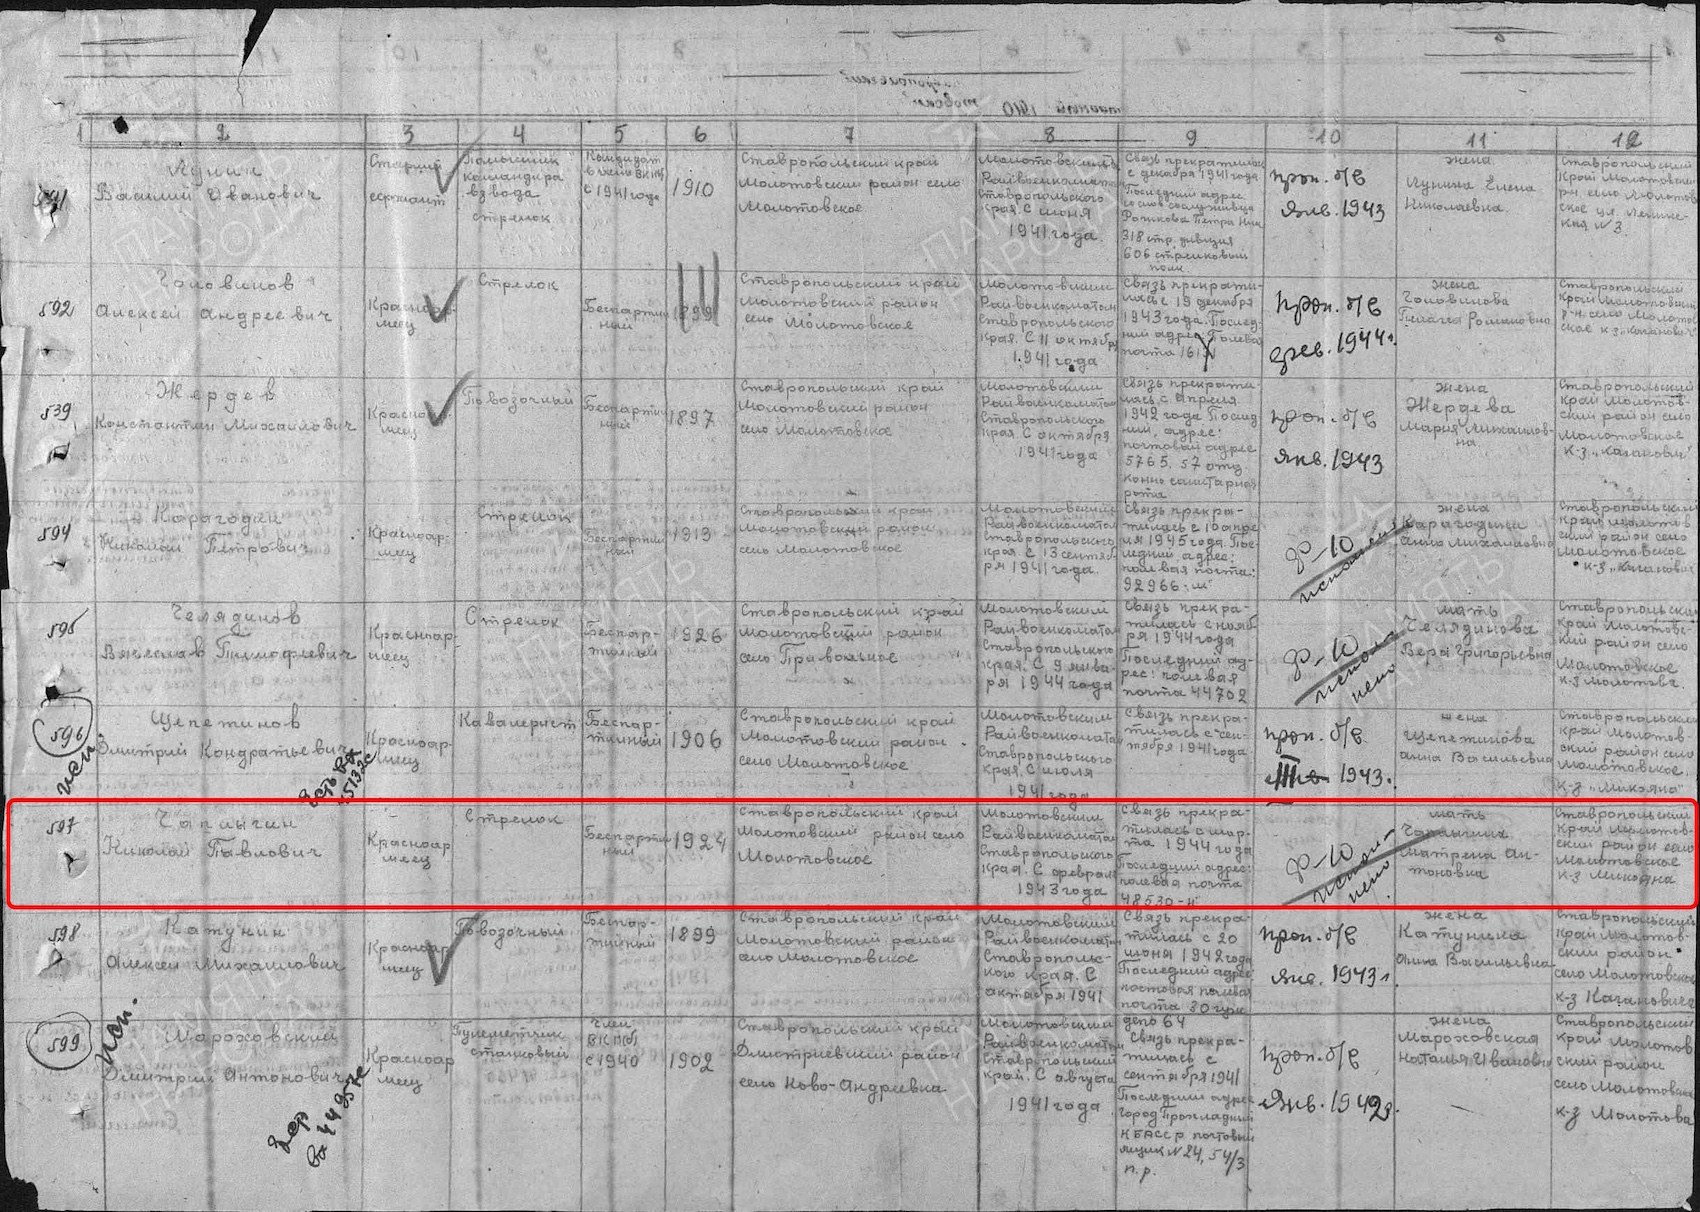 1 2 3 4 5 6 7 8 9 10 11 12
Лунин
Василий Иванович
Старший
сержант
Помощник
командира
взвода
стрелок
Кандидат
с 1941 года
1910
Ставропольский край
Молотовский район село
Молотовское
Молотовским
Райвоенкоматом
Ставропольского
края. С июня
1941 года.
Связь прекратилась
с декабря 1941 года
Последний адрес
318 стр. дивизия
606 стрелковый
полк
проп. б/в
янв. 1943
жена
Лунина Елена
Николаевна.
Ставропольский
край Молотовский
592
Головинов
Алексей Андреевич
Красноар-
меец
Стрелок
Беспартий-
ный
1899
Ставропольский край
Молотовский район
село Молотовское
Молотовским
Райвоенкоматом
Ставропольского
края. С 11 октября
1941 года
Связь прекрати-
лась с 19 декабря
1943 года. Послед-
ний адрес: Полевая
почта
проп. б/в
фев. 1944 г.
жена
Головинова
Пелагея Романовна
Ставропольский
край Молотовский
р-н. село Молотов-
ское к-з "Каганович"
539
Жердев
Константин Михайлович
Красноар-
меец
Повозочный
Беспартий-
ный
1897
Ставропольский край
Молотовский район
село Молотовское
Молотовским
Райвоенкоматом
Ставропольского
края. С октября
1941 года
Связь прекрати-
лась с апреля
1942 года. Послед-
ний адрес:
почтовый адрес
5765. 57 отд.
конно санитарная
рота
проп. б/в
янв. 1943
жена
Жердева
Мария Михайлов-
на.
Ставропольский
край Молотов-
ский район село
Молотовское
к-з "Каганович"
594
Карагодин
Николай Петрович
Красноар-
меец
Стрелок
Беспартий-
ный
1913
Ставропольский край
Молотовский район
село Молотовское
Молотовским
Райвоенкоматом
Ставропольского
края с 13 сентяб-
ря 1941 года.
Связь прекра-
тилась с 10 апре-
ля 1945 года. Пос-
ледний адрес:
полевая почта:
92966 "м"
Ф-10
исполнено
жена
Карагодина
Анна Михайловна
Ставропольский
край Молотов-
ский район село
Молотовское
к-з "Каганович"
595
Челядинов
Вячеслав Тимофеевич
Красноар-
меец
Стрелок
Беспар-
тийный
1926
Ставропольский край
Молотовский район
село Привольное
Молотовским
Райвоенкоматом
Ставропольского
края. С 9 янва-
ря 1944 года
Связь прекра-
тилась с нояб-
ря 1944 года
Последний ад-
рес: полевая
почта 44702
Ф-10
исполнено
мать
Челядинова
Вера Григорьевна
Ставропольский
край Молотов-
ский район село
Молотовское
к-з Молотова.
596
исп
Щепетинов
Дмитрий Кондратьевич
Красноар-
меец
Кавалерист
Беспар-
тийный
1906
Ставропольский край
Молотовский район
село Молотовское
Молотовским
Райвоенкоматом
Ставропольского
края. С июля
1941 года
Связь прекра-
тилась с сен-
тября 1941 года.
проп. б/в
1943.
жена
Щепетинова
Анна Васильевна
Ставропольский
край Молотов-
ский район село
Молотовское.
к-з "Микояна"
597
Чаплыгин
Николай Павлович
Красноар-
меец
Стрелок
Беспартий-
ный
1924
Ставропольский край
Молотовский район село
Молотовское
Молотовским
Райвоенкоматом
Ставропольского
края. С февраля
1943 года
Связь прекра-
тилась с мар-
та 1944 года
Последний адрес:
полевая почта
48530-н
Ф-10
исполнено
мать
Чаплыгина
Матрена Ан-
тоновна
Ставропольский
край Молотов-
ский район село
Молотовское
к-з Микояна
598
Катунин
Алексей Михайлович
Красноар-
меец
Повозочный
Беспар-
тийный
1899
Ставропольский край
Молотовский район
село Молотовское
Молотовским
Райвоенкоматом
Ставрополь-
ского края. С
октября 1941
Связь прекра-
тилась с 20
июня 1942 года
Последний адрес
проп. б/в
янв. 1943 г.
жена
Катунина
Анна Васильевна
Ставропольский
край Молотов-
ский район
село Молотовское
к-з Каганович
599
Исп.
Марховский
Дмитрий Антонович
Красноар
меец
Пулеметчик
станковый
член
ВКП(б)
с 1940
1902
Ставропольский край
Дмитриевский район
село Ново-Андреевка
Молотовским
Райвоенкоматом
Ставропольский
край. С августа
1941 года
Связь прекра-
тилась с
сентября 1941
Последний адрес
город Прохладный
КБАССР почтовый
ящик №24, 54/3
п.р.
проп. б/в
янв. 1942 г.
жена
Марховская
Наталья Ивановна
Ставропольский
край Молотов
ский район
село Молотовское
к-з Молотова
ПАМЯТЬ
НАРОДА